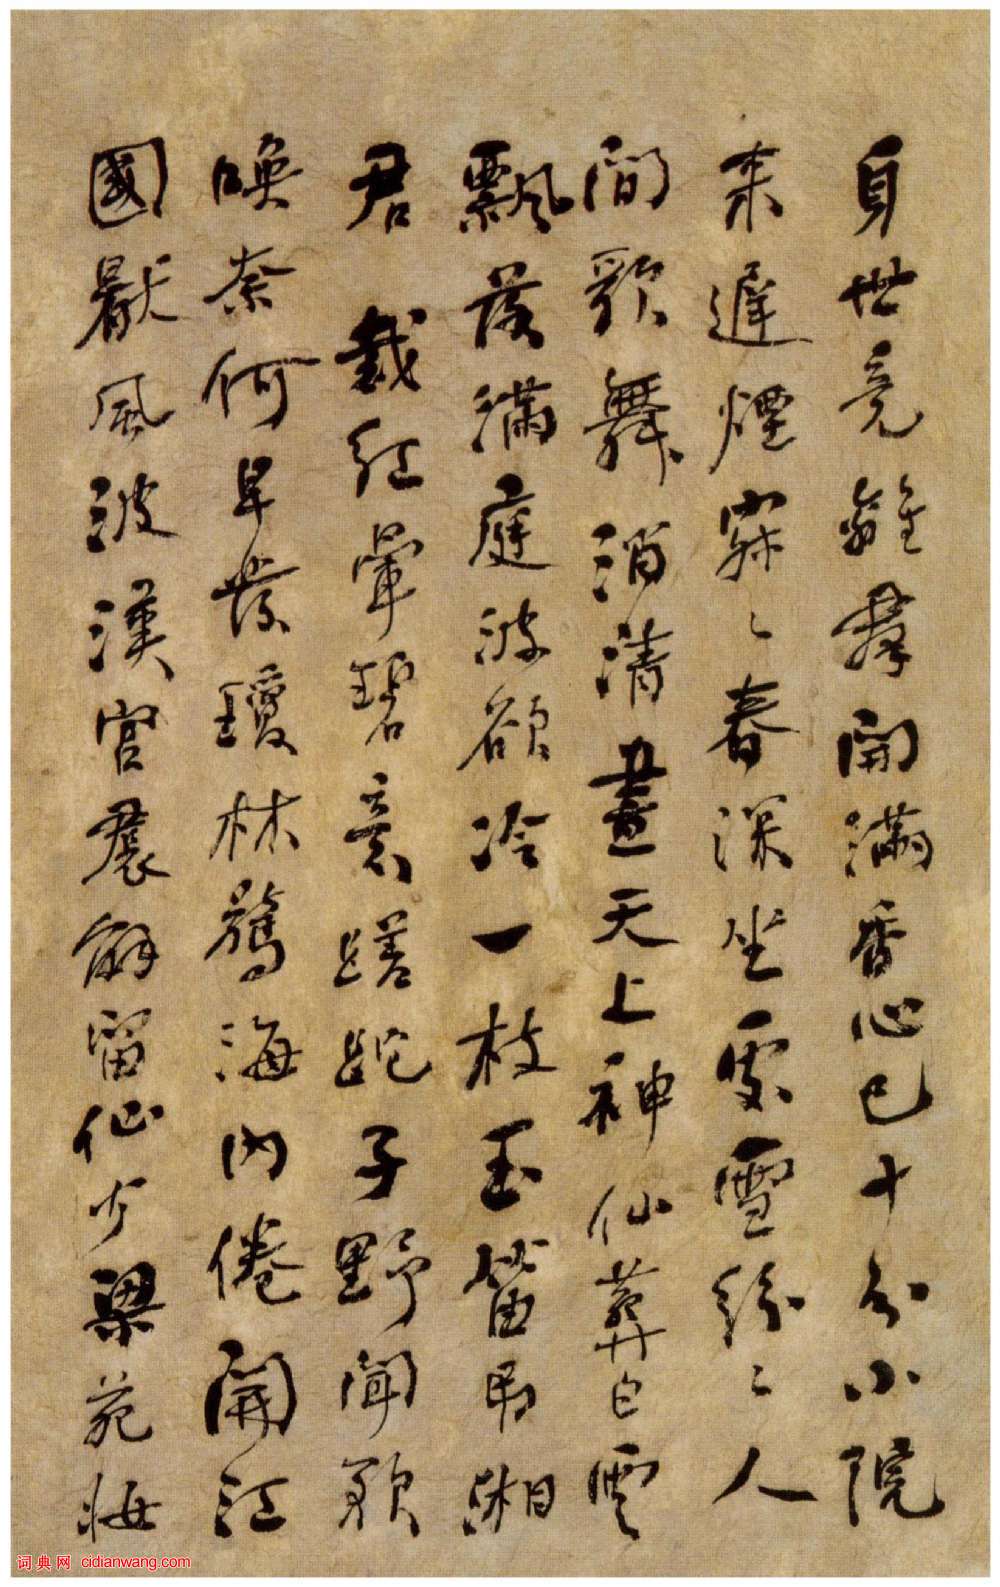 身世竟離群開滿香心已十分小院
來遲煙寂〻春深坐處雪紛〻人
間歌舞消清晝天上神仙葬白雲
飄落滿庭波欲冷一枝玉笛吊湘
君 截紅暈碧意蹉跎子野聞歌
喚奈何早發瓊林驚海內倦開江
國厭風波漢宮裙解留仙少梁苑妝
词典网 cidianwang.com